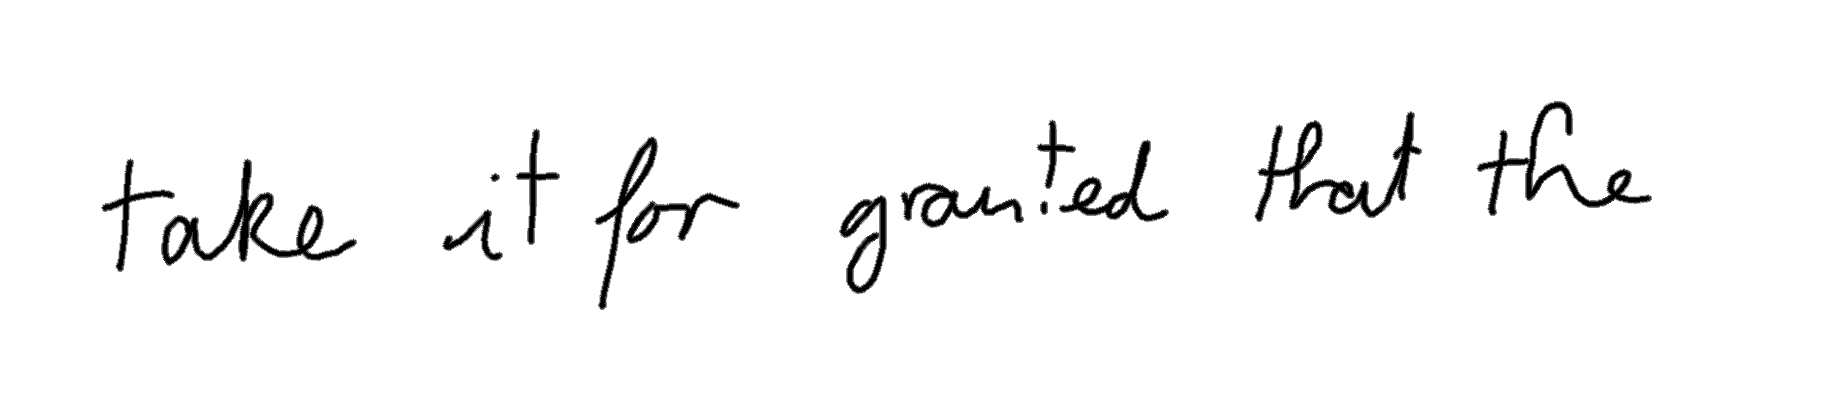 take it for granted that the